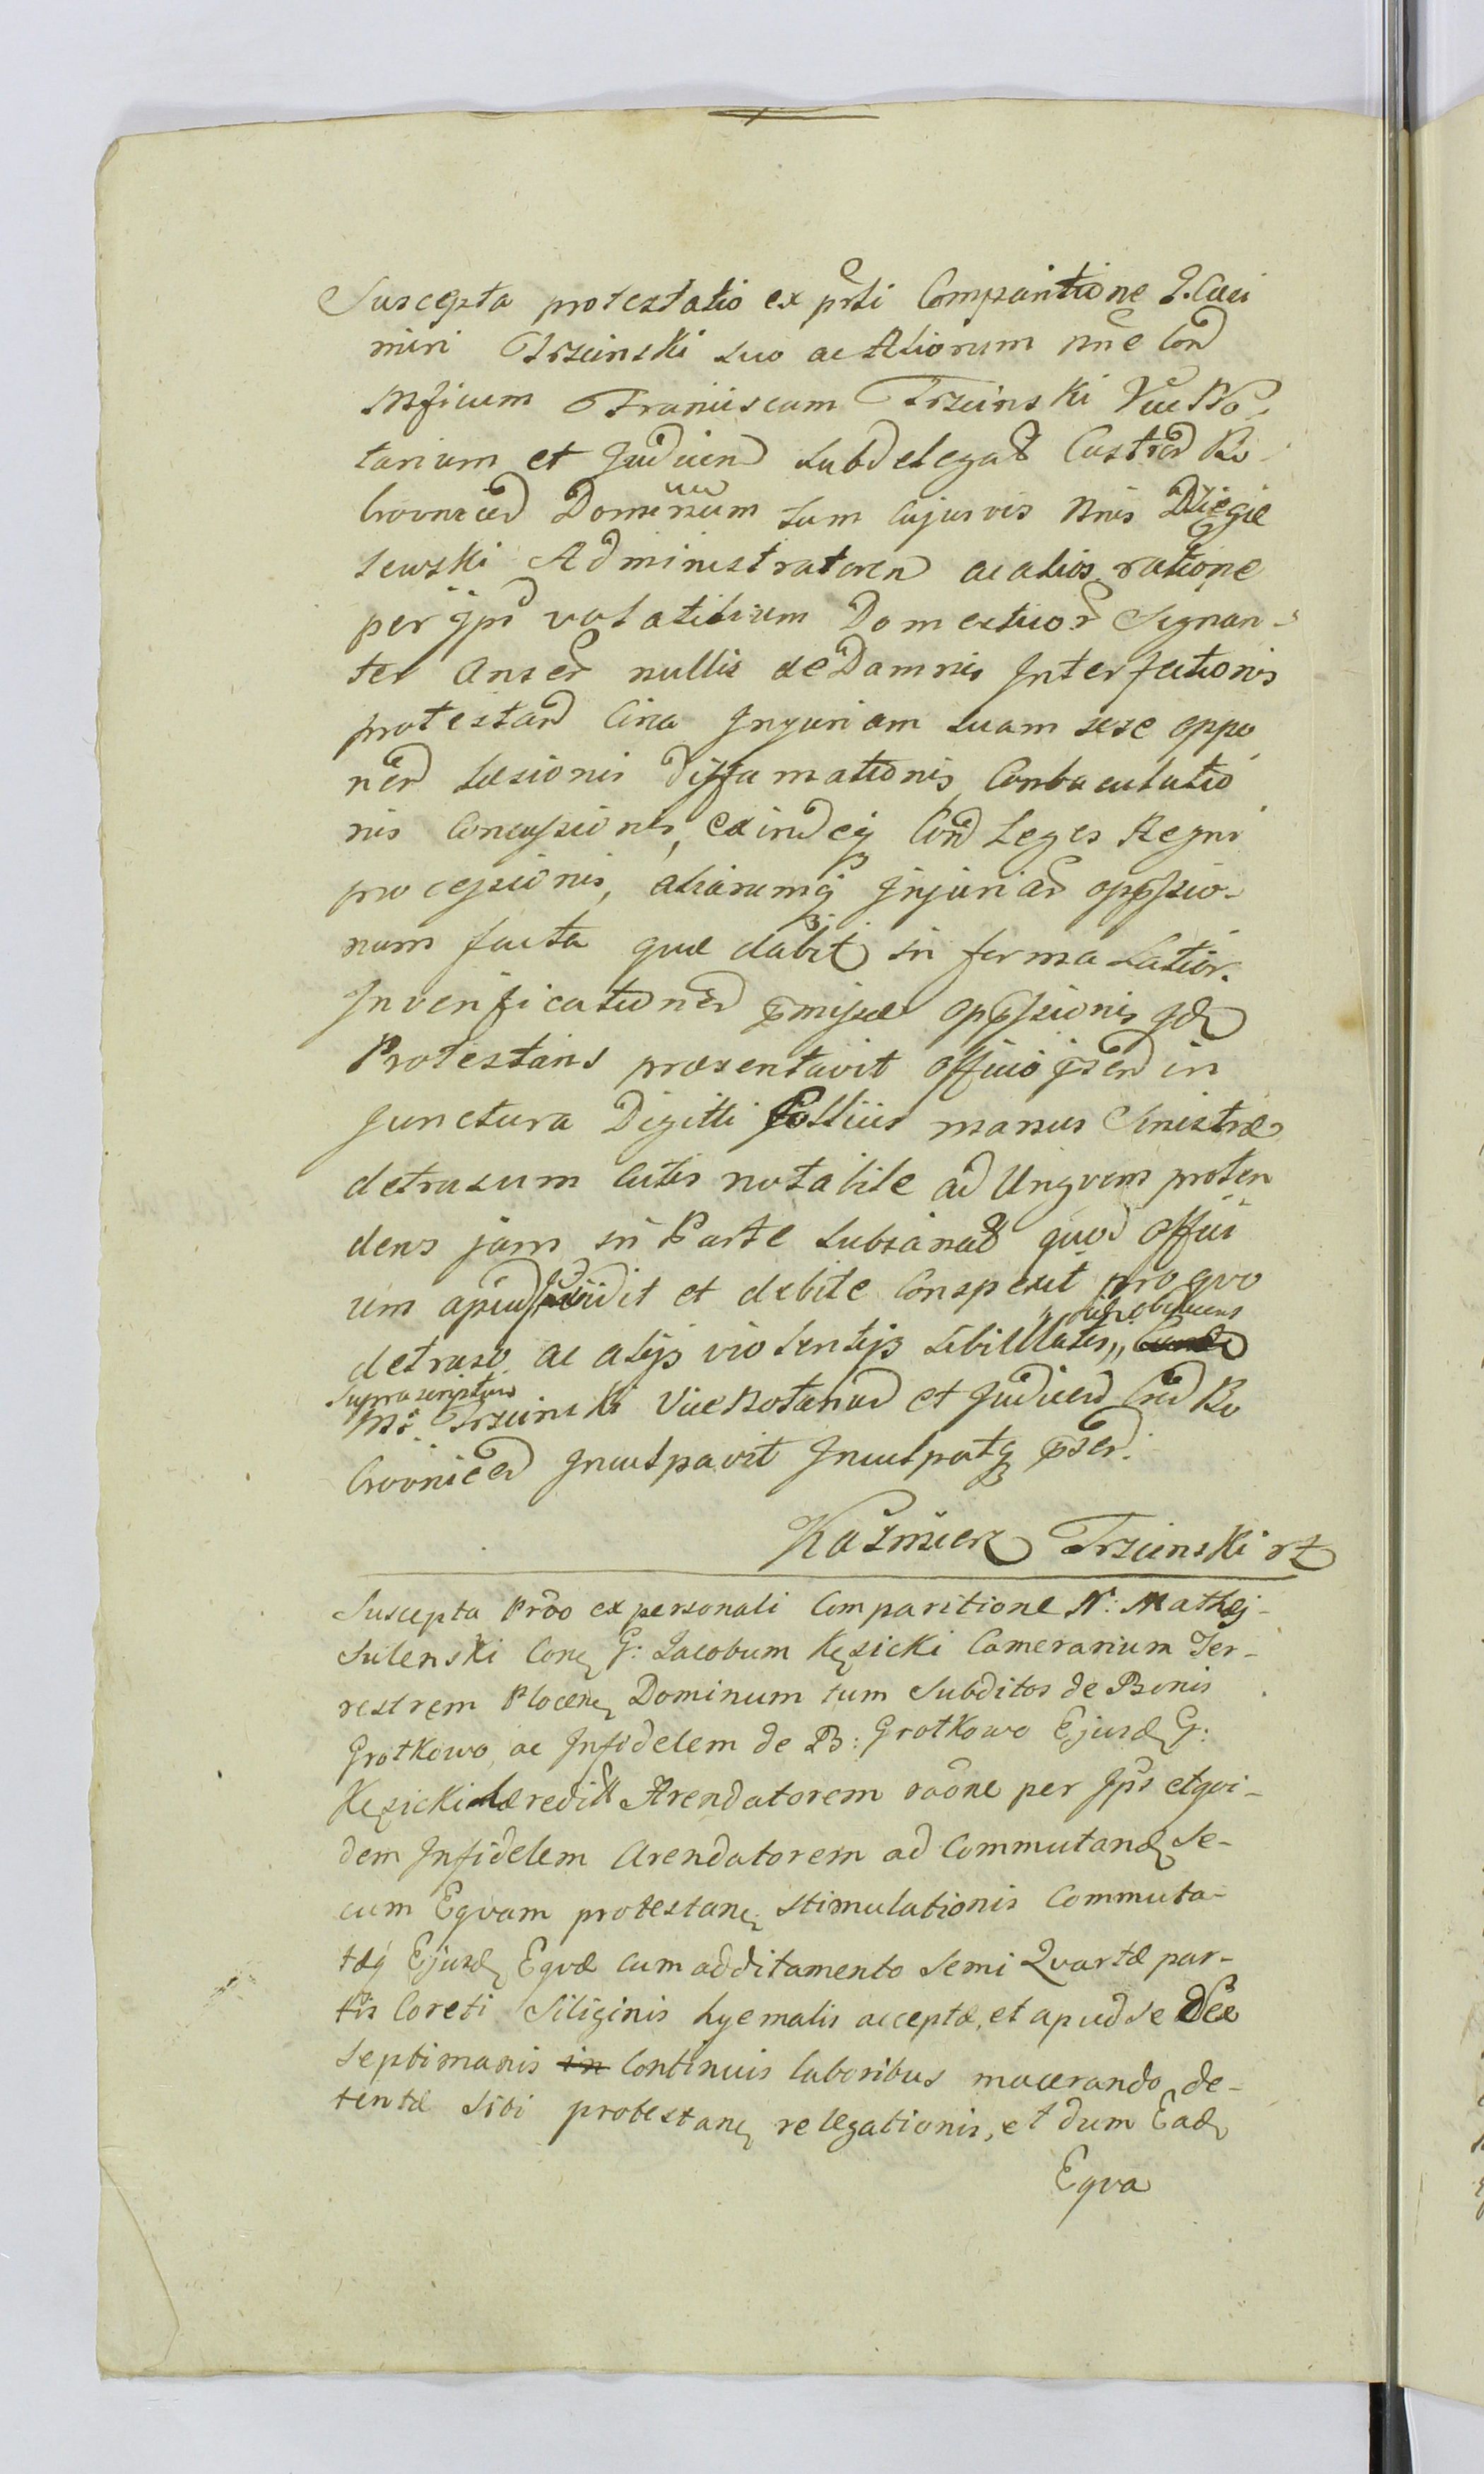 Suscepta protestatio ex prsti Comparitione G. Casi
miri Trzcinski suo ac Aliorum nne Con
Mficum Franciscum Trzcinski Vice No-
tarium et Judicen Subdelegat Castren Bo
brovnicen Dominum tum cujusvis Nnis Dzięgie
lewski Administratoren ac alios ratione
per Ips volatilium Domesticor Signan-
ter Anser nullis de Damnis Interfectionis
protestan Circa Injuriam suam sese oppo
nen Læsionis diffamationis, Conbaculatio
nis Concussionis, exindeq Con Leges Regni
processionis, aliarumq Injuriar oppssio-
num facta quæ dabit in forma Latior.
In verificationen pmissæ oppssionis Idem
Protestans præsentavit officio psen in
Junctura Digitti Pollicis manus Sinistræ
detrasum cutis notabile ad Ungvem proten
dens jam in Parte subsanat quod offici
um apud vidit et debite Conspexit pro quo
detraso ac alijs violentijs sibi Illatis,,
suprascriptum
Trzcinski Vice Notariud et Judicen Cren Bo
brovnicen Inculpavit Inculpatq psen.
Kazmierz Trzcinski rt
Suscepta Prõo ex personali Comparitione N: Mathej
Sulenski Con G: Jacobum Kęsicki Camerarium Ter-
restrem Plocen Dominum tum Subditos de Bonis
Grotkowo, ac Infidelem de B: Grotkowo Ejusd G:
Kęsicki hæredit Arendatorem raõne per Ips et qvi-
dem Infidelem Arendatorem ad Commutand Se-
cum Eqvam protestan stimulationis Commuta-
tæq Ejusd Eqvæ cum additamento Semi Qvartæ par-
tis Coreti Siliginis hyemalis acceptæ, et apud se
Septimanis in Continuis laboribus macerando, de-
tentæ Sibi protestan relegationis, et dum Ead
Eqva